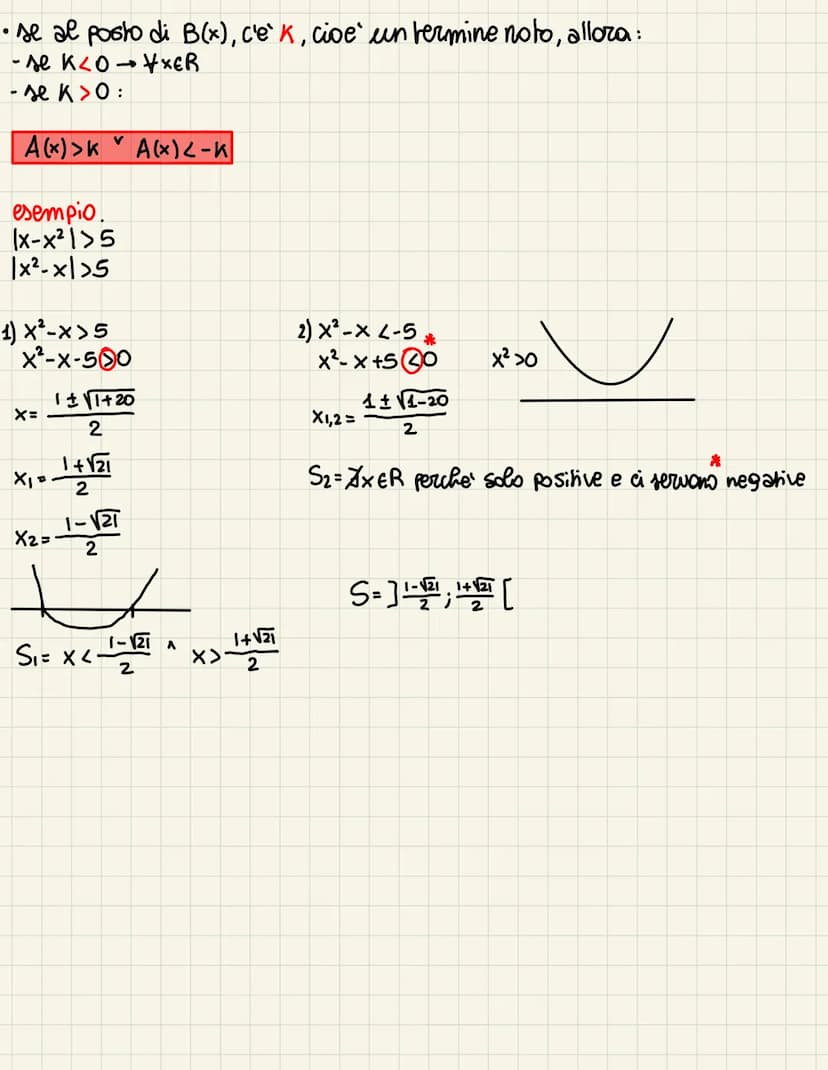 • se al posto di B(x), c'e' K, cioe' un termine noto, allora:
- se K<0 → ∀x∈R
- se K>0:
A(x)>K ∨ A(x)<-K
esempio.
|x-x²|>5
|x²-x|>5
1) x²-x>5
x²-x-5>0
x= 1±√1+20 / 2
x₁= 1+√21 / 2
x₂= 1-√21 / 2
S₁= x< 1-√21 / 2 ∧ x> 1+√21 / 2
2) x²-x<-5 *
x²-x+5<0 x²>0
x₁,₂= 1±√1-20 / 2
*
S₂=∄x∈R perche' solo positive e ci servono negative
S=]1-√21 / 2 ; 1+√21 / 2[